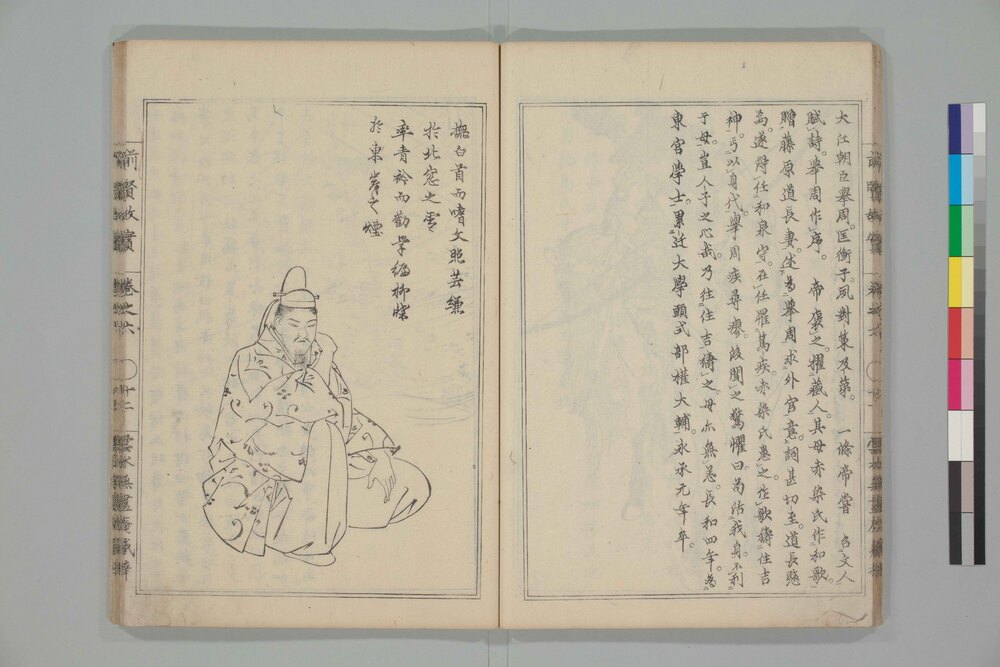 大江朝臣舉周。匡衡子。夙對策及第。一條帝嘗召文人
賦詩。舉周作序。帝褒之。擢藏人。其母赤染氏作和歌。
贈藤原道長妻。述為舉周求外官意。詞甚切至。道長愍
為。遂得任和泉守。在任罹篤疾。赤染氏患之。作歌禱住吉
神。乞以身代。舉周疾尋瘳。後聞之驚懼曰。苟活我身。不利
于母。豈人子之心哉。乃往住吉禱之。母亦無恙。長和四年。為
東宮學士。累迁大學頭式部權大輔。永承元年卒。
撫白首而嗜文照芸縑
於北窓之雪
率青衿而勸学
於東岸之煙
前賢故實 卷之六 ○ 十二